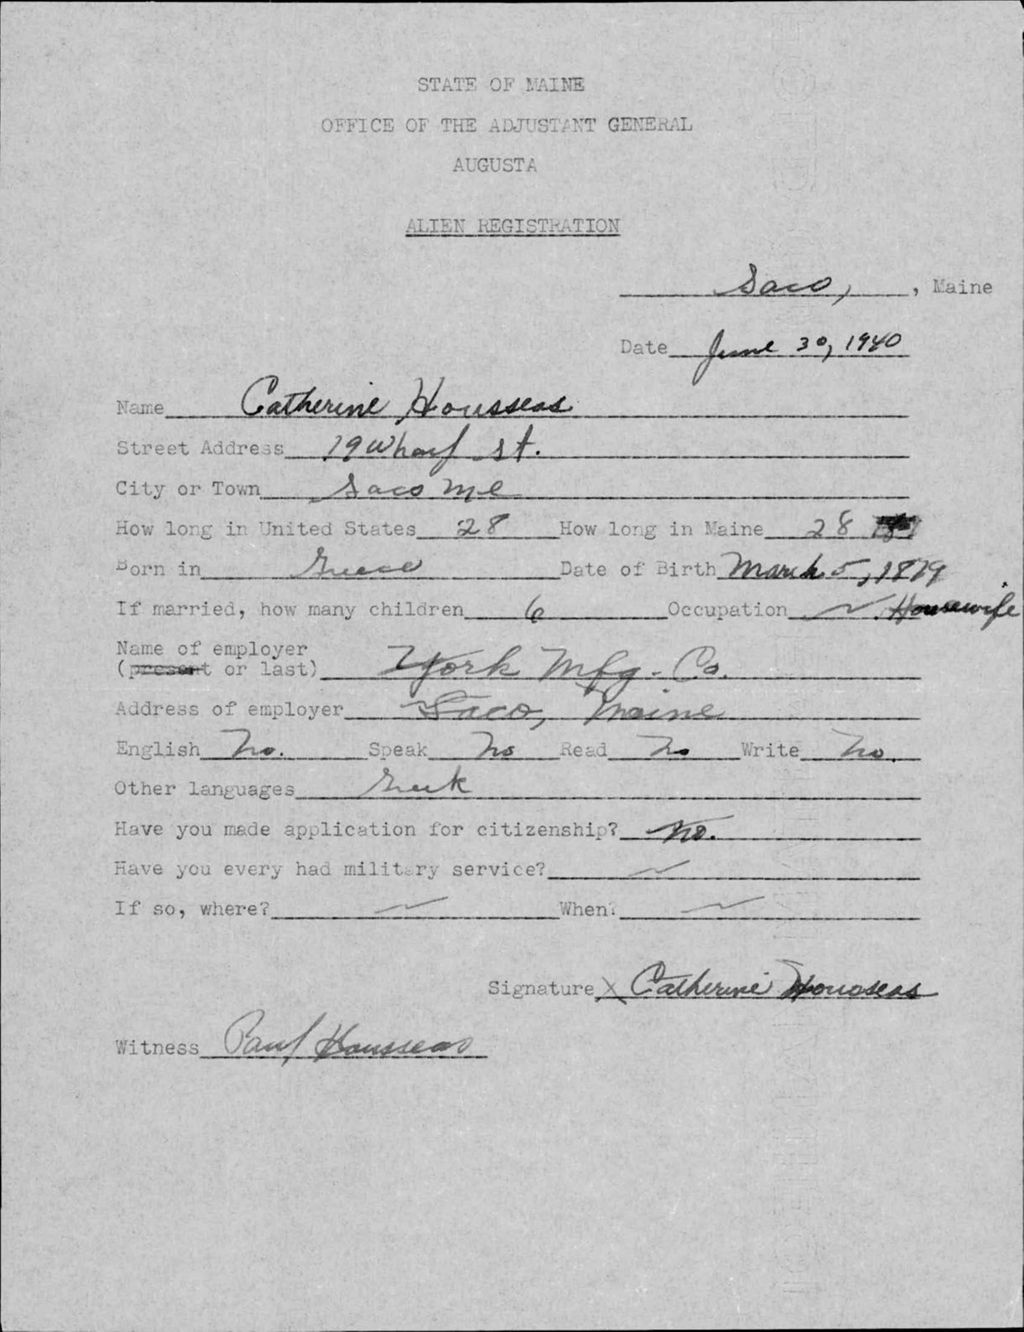 STATE OF MAINE
OFFICE OF THE ADJUSTANT GENERAL
AUGUSTA
ALIEN REGISTRATION
Saco, , Maine
Date June 30, 1940
Name Catherine Housseas
Street Address 79 Wharf St.
City or Town Saco Me
How long in United States 28 How long in Maine 28
Born in Greece Date of Birth March 5, 1879
If married, how many children 6 Occupation Housewife
Name of employer
(present or last) York Mfg. Co.
Address of employer Saco, Maine
English No. Speak No Read No Write No.
Other languages Greek
Have you made application for citizenship? No.
Have you every had military service?
If so, where? When?
Signature X Catherine Housseas
Witness Paul Housseas